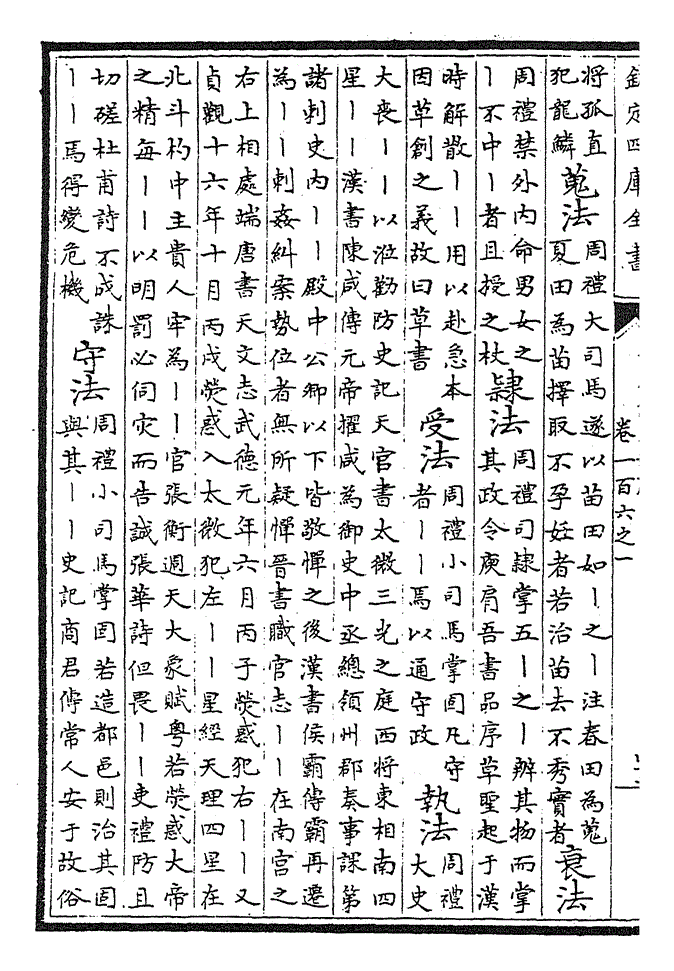 欽定四庫全書
卷一百六之一
將孤直
犯龍鱗
蒐法
周禮大司馬遂以苗田如丨之丨注春田為蒐
夏田為苗擇取不孕妊者若治苗去不秀實者
衰法
周禮禁外内命男女之
丨不中丨者且授之杖
隸法
周禮司隸掌五丨之丨辨其物而掌
其政令庾肩吾書品序草聖起于漢
時解散丨丨用以赴急本
因草創之義故曰草書
受法
周禮小司馬掌固凡守
者丨丨焉以通守政
執法
周禮
大史
大喪丨丨以涖勸防史記天官書太微三光之庭西將東相南四
星丨丨漢書陳咸傳元帝擢咸為御史中丞總領州郡奏事課第
諸刺史内丨丨殿中公卿以下皆敬憚之後漢書侯霸傳霸再遷
為丨丨刺姦糾案勢位者無所疑憚晉書職官志丨丨在南宫之
右上相處端唐書天文志武德元年六月丙子熒惑犯右丨丨又
貞觀十六年十月丙戌熒惑入太微犯左丨丨星經天理四星在
北斗杓中主貴人牢為丨丨官張衡週天大象賦粤若熒惑大帝
之精每丨丨以明罰必伺灾而告誠張華詩但畏丨丨吏禮防且
切磋杜甫詩不成誅
丨丨焉得變危機
守法
周禮小司馬掌固若造都邑則治其固
與其丨丨史記商君傳常人安于故俗